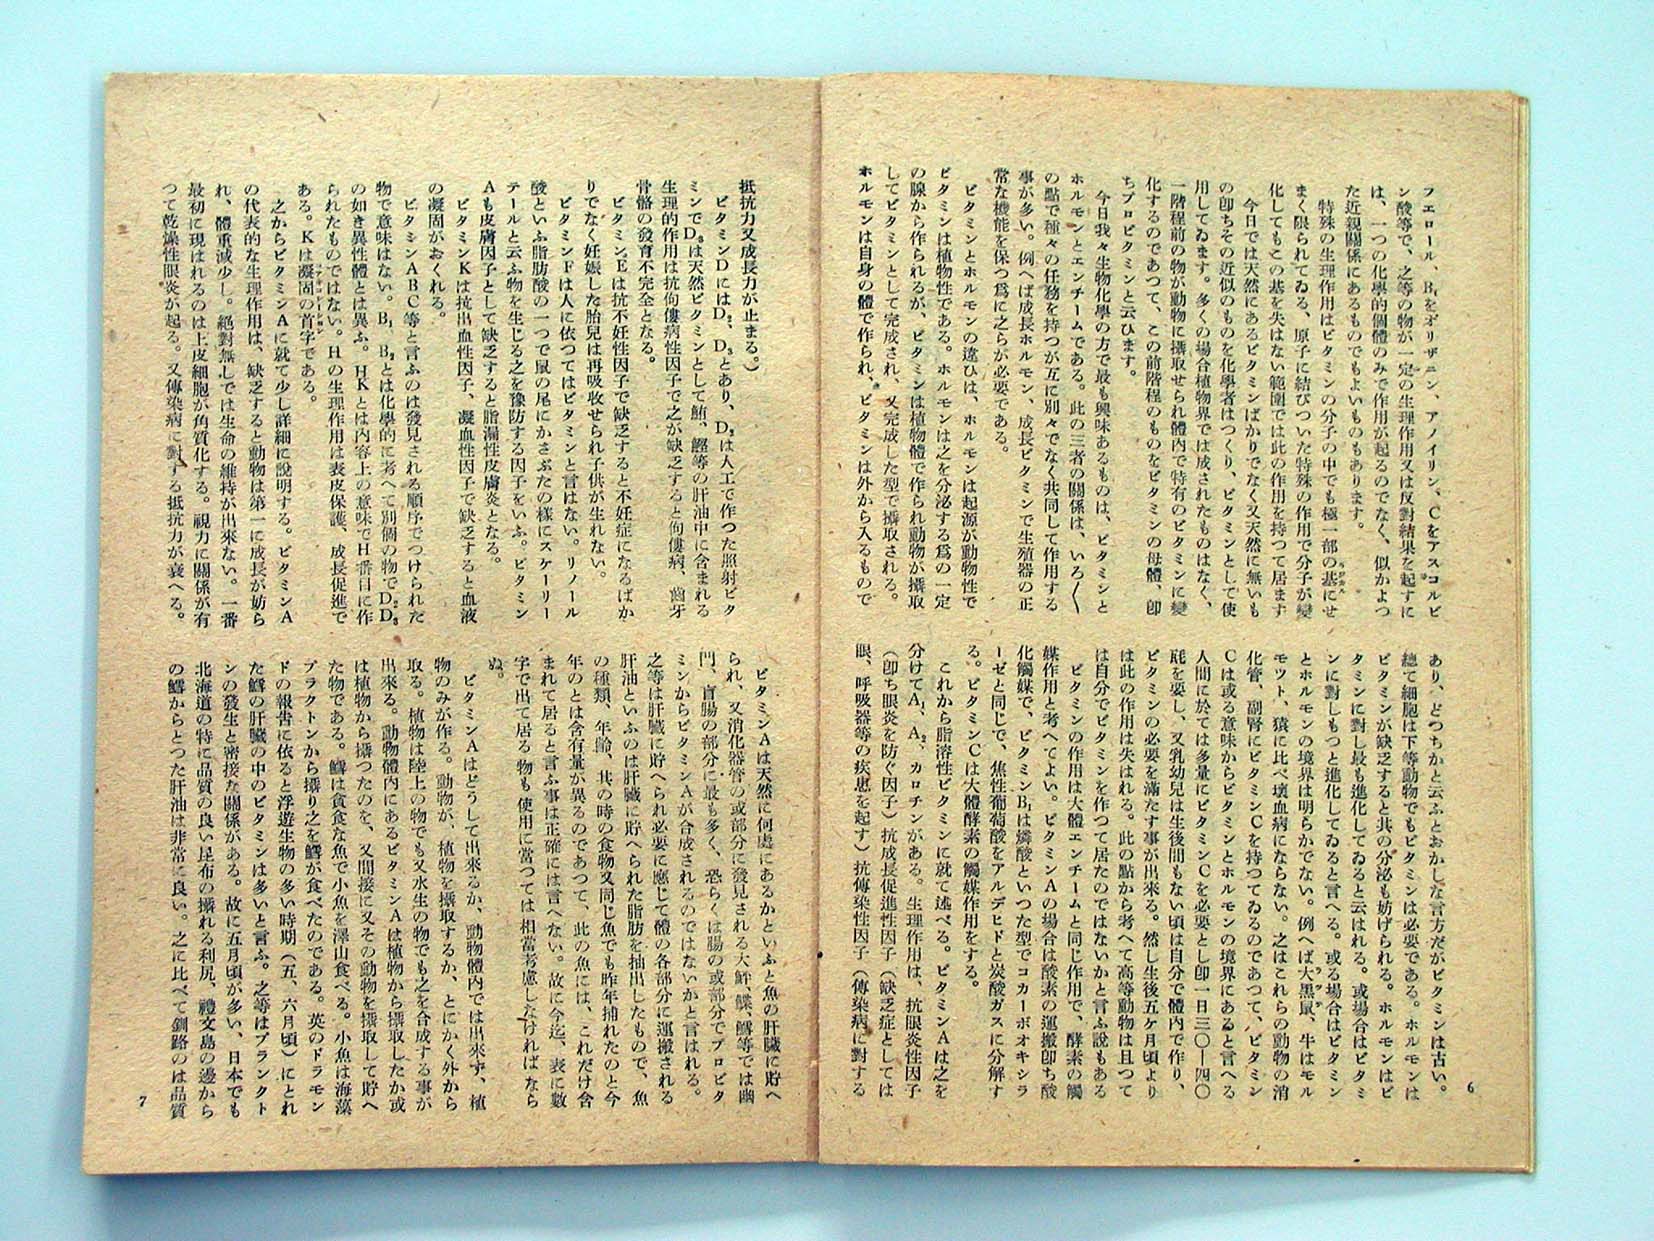 フエロール、B₁をオリザニン、アノイリン、Cをアスコルビ
ン酸等で、之等の物が一定の生理作用又は反對結果を起すに
は、一つの化學的個體のみで作用が起るのでなく、似かよつ
た近親關係にあるものでもよいものもあります。
特殊の生理作用はビタミンの分子の中でも極一部の基にせ
まく限られてゐる、原子に結びついた特殊の作用で分子が變
化してもこの基を失はない範圍では此の作用を持つて居ます
今日では天然にあるビタミンばかりでなく又天然に無いも
の卽ちその近似のものを化學者はつくり、ビタミンとして使
用してゐます。多くの場合植物界では成されたものはなく、
一階程前の物が動物に攝取せられ體內で特有のビタミンに變
化するのであつて、この前階程のものをビタミンの母體、卽
ちプロビタミンと云ひます。
今日我々生物化學の方で最も興味あるものは、ビタミンと
ホルモンとエンチームである。此の三者の關係は、いろ〱
の點で種々の任務を持つが互に別々でなく共同して作用する
事が多い。例へば成長ホルモン、成長ビタミンで生殖器の正
常な機能を保つ爲に之らが必要である。
ビタミンとホルモンの違ひは、ホルモンは起源が動物性で
ビタミンは植物性である。ホルモンは之を分泌する爲の一定
の腺から作られるが、ビタミンは植物體で作られ動物が攝取
してビタミンとして完成され、又完成した型で攝取される。
ホルモンは自身の體で作られ、ビタミンは外から入るもので
あり、どつちかと云ふとおかしな言方だがビタミンは古い。
總て細胞は下等動物でもビタミンは必要である。ホルモンは
ビタミンが缺乏すると共の分泌も妨げられる。ホルモンはビ
タミンに對し最も進化してゐると云はれる。或場合はビタミ
ンに對しもつと進化してゐると言へる。或る場合はビタミン
とホルモンの境界は明らかでない。例へば大黑鼠、牛はモル
モツト、猿に比べ壞血病にならない。之はこれらの動物の消
化管、副腎にビタミンCを持つてゐるのであつて、ビタミン
Cは或る意味からビタミンとホルモンの境界にあると言へる
人間に於ては多量にビタミンCを必要とし卽一日三〇ー四〇
瓱を要し、又乳幼兒は生後間もない頃は自分で體內で作り、
ビタミンの必要を滿たす事が出來る。然し生後五ケ月頃より
は此の作用は失はれる。此の點から考へて高等動物は且つて
は自分でビタミンを作つて居たのではないかと言ふ說もある
ビタミンの作用は大體エンチームと同じ作用で、酵素の觸
媒作用と考へてよい。ビタミンAの場合は酸素の運搬卽ち酸
化觸媒で、ビタミンB₁は燐酸といつた型でコカーボオキシラ
ーゼと同じで、焦性葡萄酸をアルデヒドと炭酸ガスに分解す
る。ビタミンCは大體酵素の觸媒作用をする。
これから脂溶性ビタミンに就て述べる。ビタミンAは之を
分けてA₁、A₂、カロチンがある。生理作用は、抗眼炎性因子
(卽ち眼炎を防ぐ因子)抗成長促進性因子(缺乏症としては
眼、呼吸器等の疾患を起す)抗傳染性因子(傳染病に對する
6
抵抗力又成長力が止まる。)
ビタミンDにはD₂、D₃とあり、D₂は人工で作つた照射ビタ
ミンでD₃は天然ビタミンとして鮪、鰹等の肝油中に含まれる
生理的作用は抗佝僂病性因子で之が缺乏すると佝僂病、齒牙
骨骼の發育不完全となる。
ビタミンEは抗不妊性因子で缺乏すると不妊症になるばか
りでなく妊娠した胎兒は再吸收せられ子供が生れない。
ビタミンFは人に依つてはビタミンと言はない。リノール
酸といふ脂肪酸の一つで鼠の尾にかさぶたの樣にスケーリー
テールと云ふ物を生じる之を豫防する因子をいふ。ビタミン
Aも皮膚因子として缺乏すると脂漏性皮膚炎となる。
ビタミンKは抗出血性因子、凝血性因子で缺乏すると血液
の凝固がおくれる。
ビタミンABC等と言ふのは發見される順序でつけられた
物で意味はない。B₁ B₂とは化學的に考へて別個の物でD₂D₃
の如き異性體とは異ふ。HKとは內容上の意味でH番目に作
られたものではない。Hの生理作用は表皮保護、成長促進で
ある。Kは凝固の首字である。
之からビタミンAに就て少し詳細に說明する。ビタミンA
の代表的な生理作用は、缺乏すると動物は第一に成長が妨ら
れ、體重減少し。絕對無しでは生命の維持が出來ない。一番
最初に現はれるのは上皮細胞が角質化する。視力に關係が有
つて乾燥性眼炎が起る。又傳染病に對する抵抗力が衰へる。
ビタミンAは天然に何處にあるかといふと魚の肝臟に貯へ
られ、又消化器管の或部分に發見される大鮃、鰈、鱈等では幽
門、盲腸の部分に最も多く、恐らくは腸の或部分でプロビタ
ミンからビタミンAが合成されるのではないかと言はれる。
之等は肝臟に貯へられ必要に應じて體の各部分に運搬される
肝油といふのは肝臟に貯へられた脂肪を抽出したもので、魚
の種類、年齡、其の時の食物又同じ魚でも昨年捕れたのと今
年のとは含有量が異るのであつて、此の魚には、これだけ含
まれて居ると言ふ事は正確には言へない。故に今迄、表に數
字で出て居る物も使用に當つては相當考慮しなければなら
ぬ。
ビタミンAはどうして出來るか、動物體內では出來ず、植
物のみが作る。動物が、植物を攝取するか、とにかく外から
取る。植物は陸上の物でも又水生の物でも之を合成する事が
出來る。動物體內にあるビタミンAは植物から攝取したか或
は植物から攝つたのを、又間接に又その動物を攝取して貯へ
た物である。鱈は貪食な魚で小魚を澤山食べる。小魚は海藻
プラクトンから攝り之を鱈が食べたのである。英のドラモン
ドの報告に依ると浮遊生物の多い時期(五、六月頃)にとれ
た鱈の肝臟の中のビタミンは多いと言ふ。之等はプランクト
ンの發生と密接な關係がある。故に五月頃が多い、日本でも
北海道の特に品質の良い昆布の攝れる利尻、禮文島の邊から
の鱈からとつた肝油は非常に良い。之に比べて釧路のは品質
7